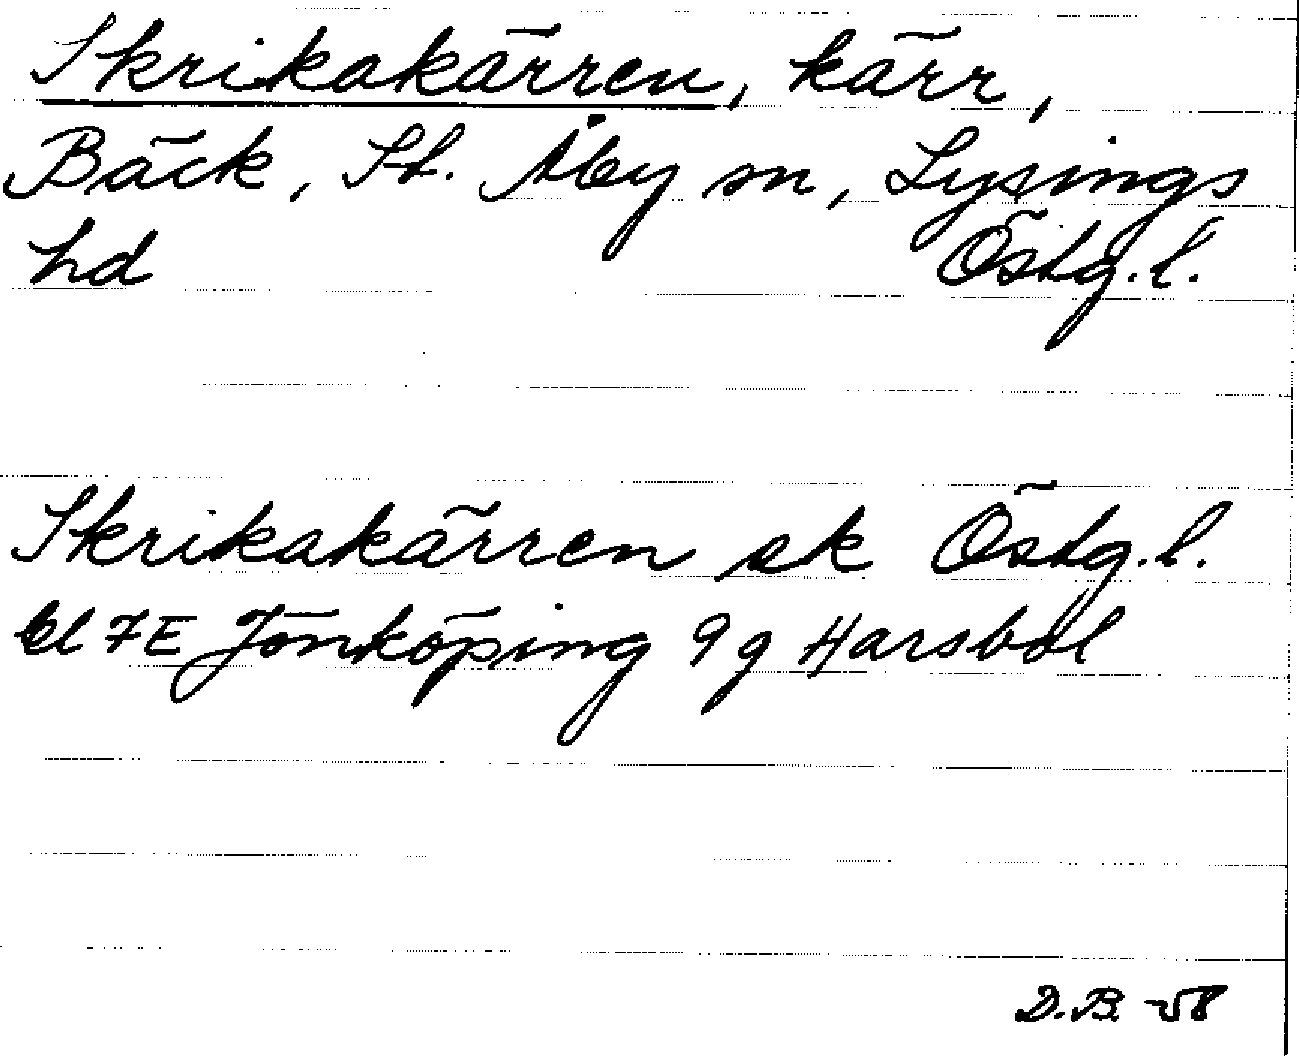 Skrikakärren, kärr,
Bäck, St. Åby sn, Lysings
hd Östg.l.
Skrikakärren ek Östg.l.
bl 7E Jönköping 9g Harsbol
D.B. -58